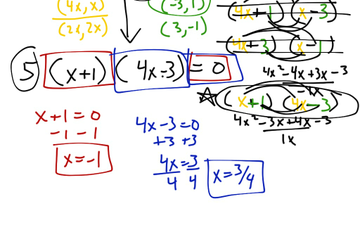 (4x, x)
(2x, 2x)
(-3, 1)
(3, -1)
(4x+1)(x-3)
(4x+3)(x-1)
4x²-4x+3x-3
-1x
(x+1)(4x-3)
4x²-3x+4x-3
1x
5 (x+1)(4x-3)=0
x+1=0
-1 -1
x=-1
4x-3=0
+3 +3
4x=3
4 4
x=3/4